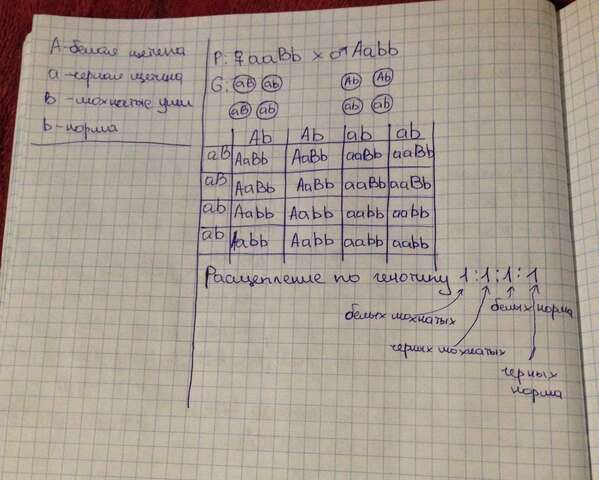 А - белая щетина
а - черная щетина
В - мохнатые уши
b - норма
P: ♀ aaBb × ♂ Aabb
G: aB ab Ab Ab
aB ab ab ab
Ab Ab ab ab
aB AaBb AaBb aaBb aaBb
aB AaBb AaBb aaBb aaBb
ab Aabb Aabb aabb aabb
ab Aabb Aabb aabb aabb
Расщепление по генотипу 1:1:1:1
белых мохнатых
белых норма
черных мохнатых
черных
норма